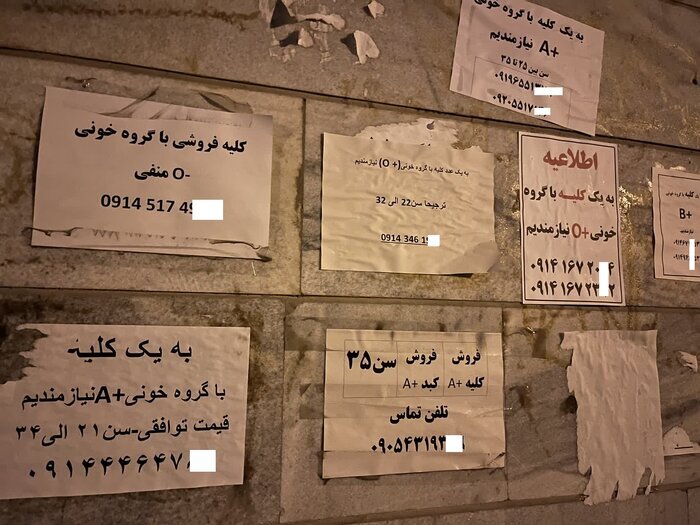 به یک کلیه با گروه خونی
A+ نیازمندیم
سن بین ۲۵ تا ۳۵
۰۹۱۹۶۵۵۱۳
۰۹۲۰۵۵۱۷
کلیه فروشی با گروه خونی
O- منفی
0914 517 4
به یک عدد کلیه با گروه خونی(O +) نیازمندیم
ترجیحا سن22 الی 32
0914 346 1
اطلاعیه
به یک کلیه با گروه
خونی O+ نیازمندیم
۰۹۱۴ ۱۶۷ ۲۰
۰۹۱۴ ۱۶۷ ۲۳
کلیه با گروه خونی
B+
نیازمندیم
به یک کلیه
با گروه خونی A+نیازمندیم
قیمت توافقی-سن ۲۱ الی ۳۴
۰۹۱۴۴۴۶۴۷
فروش کلیه A+
فروش کبد A+
سن ۳۵
تلفن تماس
۰۹۰۵۴۳۱۹۳